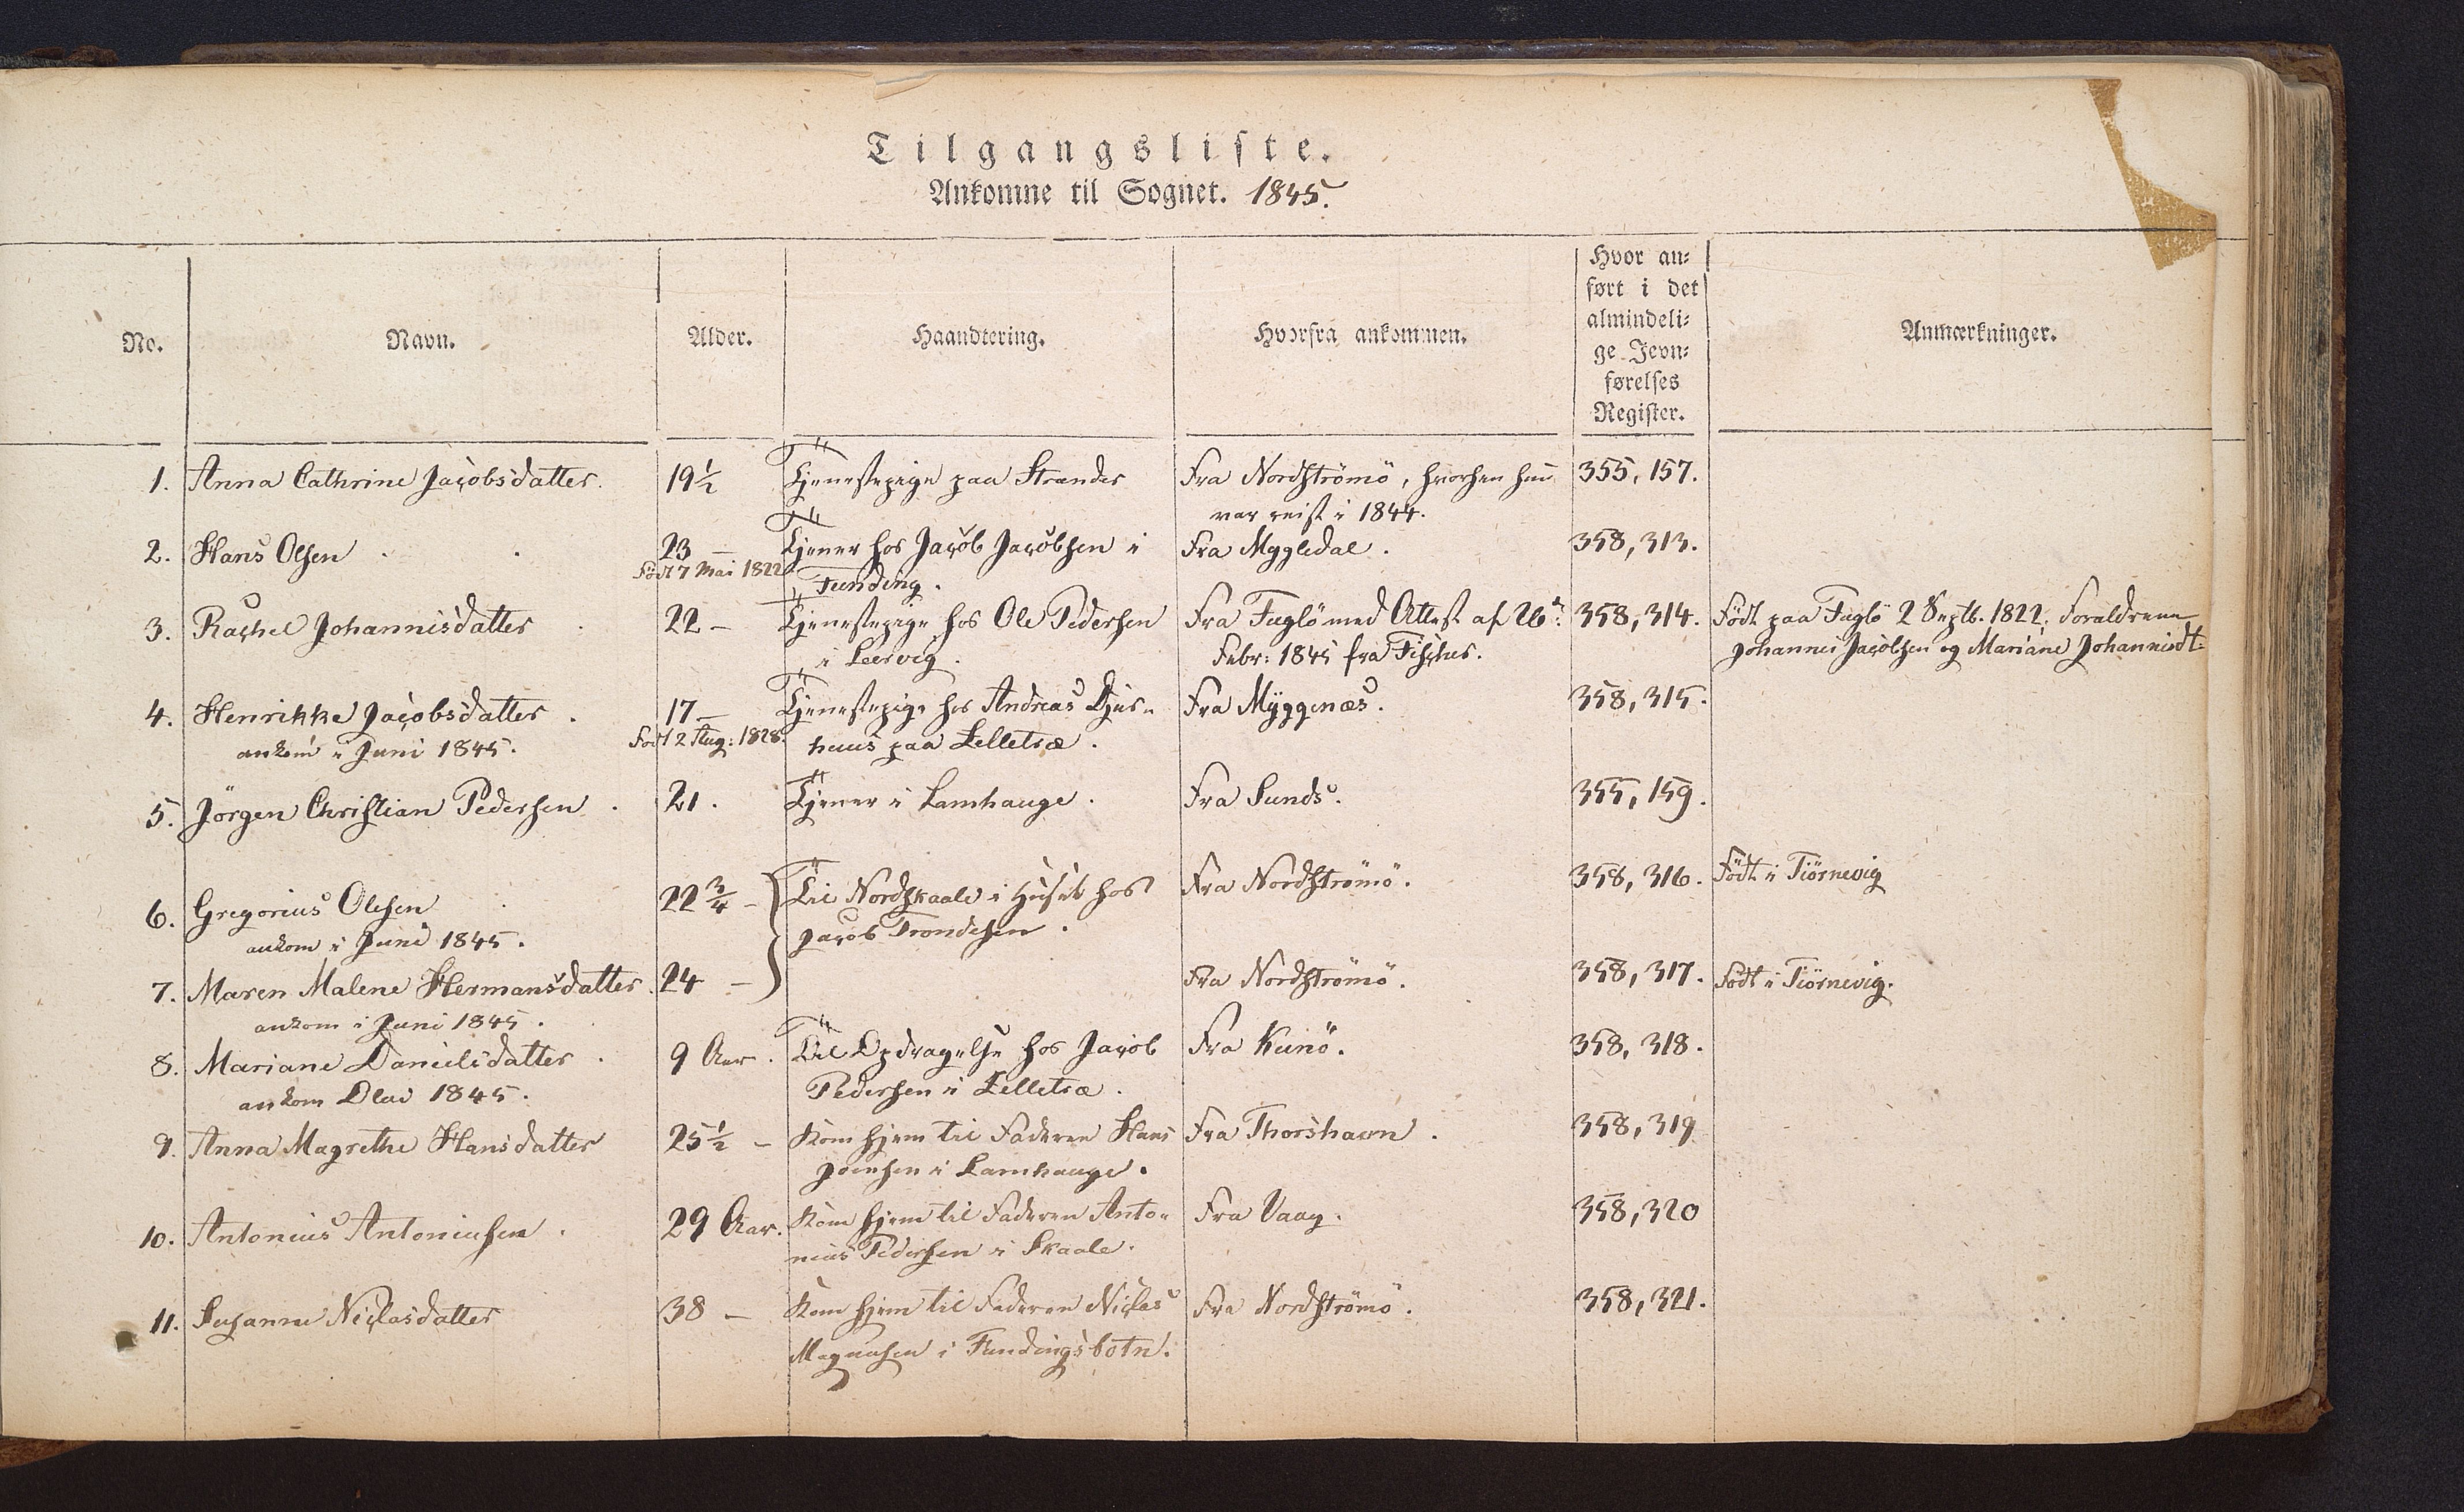 Tilgangsliste.
Ankomne til Sognet. 1845.
No.
Navn.
Alder.
Haandtering.
Hvorfra ankommen.
Hvor an=
ført i det
almindeli=
ge Jevn=
førelses
Register.
Anmærkninger.
1. Anna Cathrine Jacobsdatter. 19½ Tjenestepige paa Strænder Fra Nordströmö, hvorhen hun 355, 157.
var reist i 1844.
2. Hans Olsen 23 — Tjener hos Jacob Jacobsen i Fra Myggledal. 358, 313.
Födt 7 Mai 1822 Funding.
3. Rachel Johannisdatter 22 — Tjenestepige hos Ole Pedersen Fra Fuglö med Attest af 26de 358, 314. Födt paa Fuglö 2 Septb. 1822. Forældrene
i Leervig. Febr: 1845 fra Fischer. Johannes Jacobsen og Mariane Johannisdt:
4. Henrikke Jacobsdatter. 17 — Tjenestepige hos Andreas Djur= Fra Myggenæs. 358, 315.
ankom i Juni 1845. Födt 2 Aug: 1828. huus paa Selletræ.
5. Jörgen Christian Pedersen. 21. Tjener i Lamhauge. Fra Sunds. 355, 159.
6. Gregorius Olesen 22¾ — Til Nordskaale i Huset hos Fra Nordströmö. 358, 316. Födt i Tiörnevig
ankom i Juni 1845. Jacob Trondesen.
7. Maren Malene Hermansdatter. 24 — Fra Nordströmö. 358, 317. Födt i Tiörnevig.
ankom i Juni 1845.
8. Mariane Danielsdatter. 9 Aar. Til Opdragelse hos Jacob Fra Kunö. 358, 318.
ankom Olai 1845. Pedersen i Selletræ.
9. Anna Magrethe Hansdatter 25½ — Kom hjem til Faderen Hans Fra Thorshavn. 358, 319
Joensen i Lamhauge.
10. Antonius Antoniusen. 29 Aar. Kom hjem til Faderen Anto= Fra Vaag. 358, 320
nius Pedersen i Skaale.
11. Susanne Niclasdatter 38 — Kom hjem til Faderen Niclas Fra Nordströmö. 358, 321.
Magnusen i Fundingsbotn.